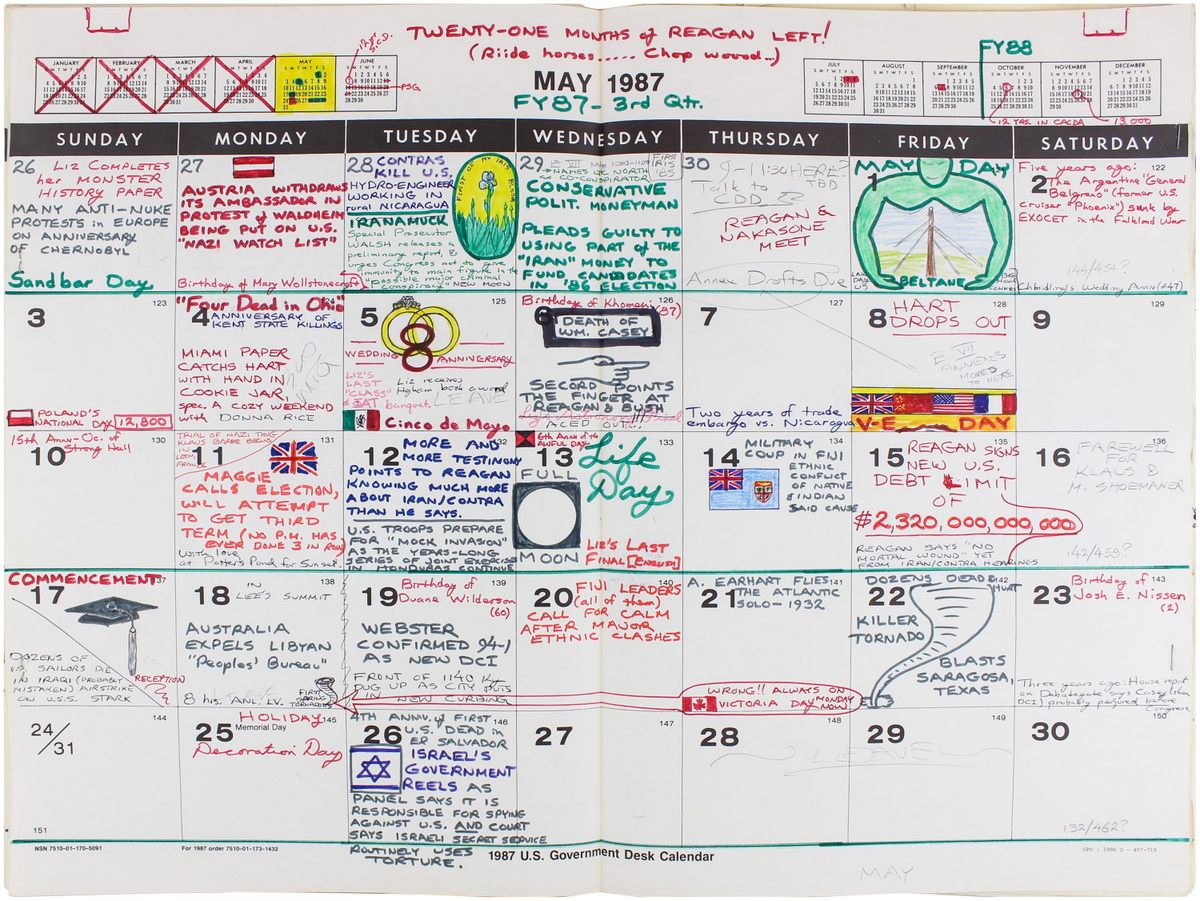 TWENTY-ONE MONTHS of REAGAN LEFT!
(Riide horses..... Chop wood...)
MAY 1987
FY87 - 3rd Qtr.
FY88
JANUARY
FEBRUARY
MARCH
APRIL
MAY
JUNE
JULY
AUGUST
SEPTEMBER
OCTOBER
NOVEMBER
DECEMBER
12 YRS. IN CACDA
13,000
SUNDAY MONDAY TUESDAY WEDNESDAY THURSDAY FRIDAY SATURDAY
26
LIZ COMPLETES
her MONSTER
HISTORY PAPER
MANY ANTI-NUKE
PROTESTS in EUROPE
ON ANNIVERSARY
OF CHERNOBYL
Sandbar Day
27
AUSTRIA WITHDRAWS
ITS AMBASSADOR IN
PROTEST of WALDHEIM
BEING PUT ON U.S.
"NAZI WATCH LIST"
Birthday of Mary Wollstonecraft
28
CONTRAS
KILL U.S.
HYDRO-ENGINEER
WORKING IN
rural NICARAGUA
IRANAMUCK
Special Prosecutor
WALSH releases a
preliminary report, &
urges Congress not to give
immunity to main figure in the
"possible major criminal
conspiracy"
NEW MOON
29
NAMES LtC NORTH
CO-CONSPIRATOR
FIRST
IRIS
'85
CONSERVATIVE
POLIT. MONEYMAN
PLEADS GUILTY TO
USING PART of the
"IRAN" MONEY TO
FUND CANDIDATES
IN '86 ELECTION
30
9-11:30 HERE?
Talk to
CDD
TBD
REAGAN &
NAKASONE
MEET
Annex Drafts Due
MAY DAY
1
BELTANE
2
122
Five years ago:
The Argentine "General
Belgrano" (former U.S.
cruiser "Phoenix") sunk by
EXOCET in the Falkland War
144/454?
3
123
POLAND'S
NATIONAL DAY
12,800
"Four Dead in Ohio"
4
124
ANNIVERSARY OF
KENT STATE KILLINGS
MIAMI PAPER
CATCHS HART
WITH HAND IN
COOKIE JAR,
spec. A COZY WEEKEND
with DONNA RICE
5
125
8
WEDDING ANNIVERSARY
LIZ'S
LAST
"CLASS"
EAT
Liz receives
Higham book award
banquet.
LEAVE
Cinco de Mayo
Birthday of Khomeini
(87)
6
126
DEATH OF
WM. CASEY
SECORD POINTS
THE FINGER AT
REAGAN & BUSH
ACED OUT...
7
127
Two years of trade
embargo vs. Nicaragua
8
128
HART
DROPS OUT
E VII
ANNEXES
MOVES
TO HERE
V-E DAY
9
129
10
15th Ann-Oc. of
Strong Hall
11
131
TRIAL OF NAZI THUG
KLAUS BARBE BEGINS
IN LYON,
FRANCE
MAGGIE
CALLS ELECTION,
WILL ATTEMPT
TO GET THIRD
TERM (NO P.M. HAS
EVER DONE 3 IN ROW)
With love
at Potter's Pond for Sunset.
12
132
MORE AND
MORE TESTIMONY
POINTS TO REAGAN
KNOWING MUCH MORE
ABOUT IRAN/CONTRA
THAN HE SAYS.
U.S. TROOPS PREPARE
FOR "MOCK INVASION"
AS THE YEARS-LONG
SERIES OF JOINT EXERCISES
IN HONDURAS CONTINUE
13
133
6th Ann of the
AWFUL DAY
FULL
MOON
Life
Day
LIE'S LAST
FINAL [ENGLISH]
14
134
MILITARY
COUP IN FIJI
ETHNIC
CONFLICT
OF NATIVE
& INDIAN
SAID CAUSE
15
135
REAGAN SIGNS
NEW U.S.
DEBT LIMIT
OF
$2,320,000,000,000
REAGAN SAYS "NO
MORTAL WOUND" YET
FROM IRAN/CONTRA HEARINGS
16
136
FAREWELL
FOR
KLAUS &
M. SHOEMAKER
142/458?
COMMENCEMENT
17
137
DOZENS OF
U.S. SAILORS DIE
IN IRAQI (PROBABLY
MISTAKEN) AIRSTRIKE
ON U.S.S. STARK
RECEPTION
18
138
IN
LEE'S SUMMIT
AUSTRALIA
EXPELS LIBYAN
"Peoples' Bureau"
8 hrs. ANL. LV.
FIRST
SPRING
TORNADOES
19
139
Birthday of
Duane Wilderson
(60)
WEBSTER
CONFIRMED 94-1
AS NEW DCI
FRONT OF 1140
DUG UP AS CITY PUTS
IN NEW CURBING
20
140
FIJI LEADERS
(all of them)
CALL FOR CALM
AFTER MAJOR
ETHNIC CLASHES
21
141
A. EARHART FLIES
THE ATLANTIC
SOLO - 1932
WRONG!! ALWAYS ON
MONDAY
VICTORIA DAY NOW.
22
142
DOZENS DEAD &
HURT
KILLER
TORNADO
BLASTS
SARAGOSA,
TEXAS
23
143
Birthday of
Josh E. Nissen
(2)
Three years ago: House report
on Debategate says Casey (then
DCI) probably perjured before
Congress
24/31
144
151
25
145
HOLIDAY
Memorial Day
Decoration Day
26
146
4TH ANNV. of FIRST
U.S. DEAD in
EL SALVADOR
ISRAEL'S
GOVERNMENT
REELS AS
PANEL SAYS IT IS
RESPONSIBLE FOR SPYING
AGAINST U.S. AND COURT
SAYS ISRAELI SECRET SERVICE
ROUTINELY USES
TORTURE.
27
147
28
148
LEAVE
29
149
30
150
132/462?
NSN 7510-01-170-5091
For 1987 order 7510-01-173-1432
1987 U.S. Government Desk Calendar
GPO : 1986 O - 497-719
MAY